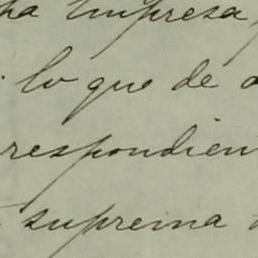 ha Empresa,
lo que de a
respondien
suprema